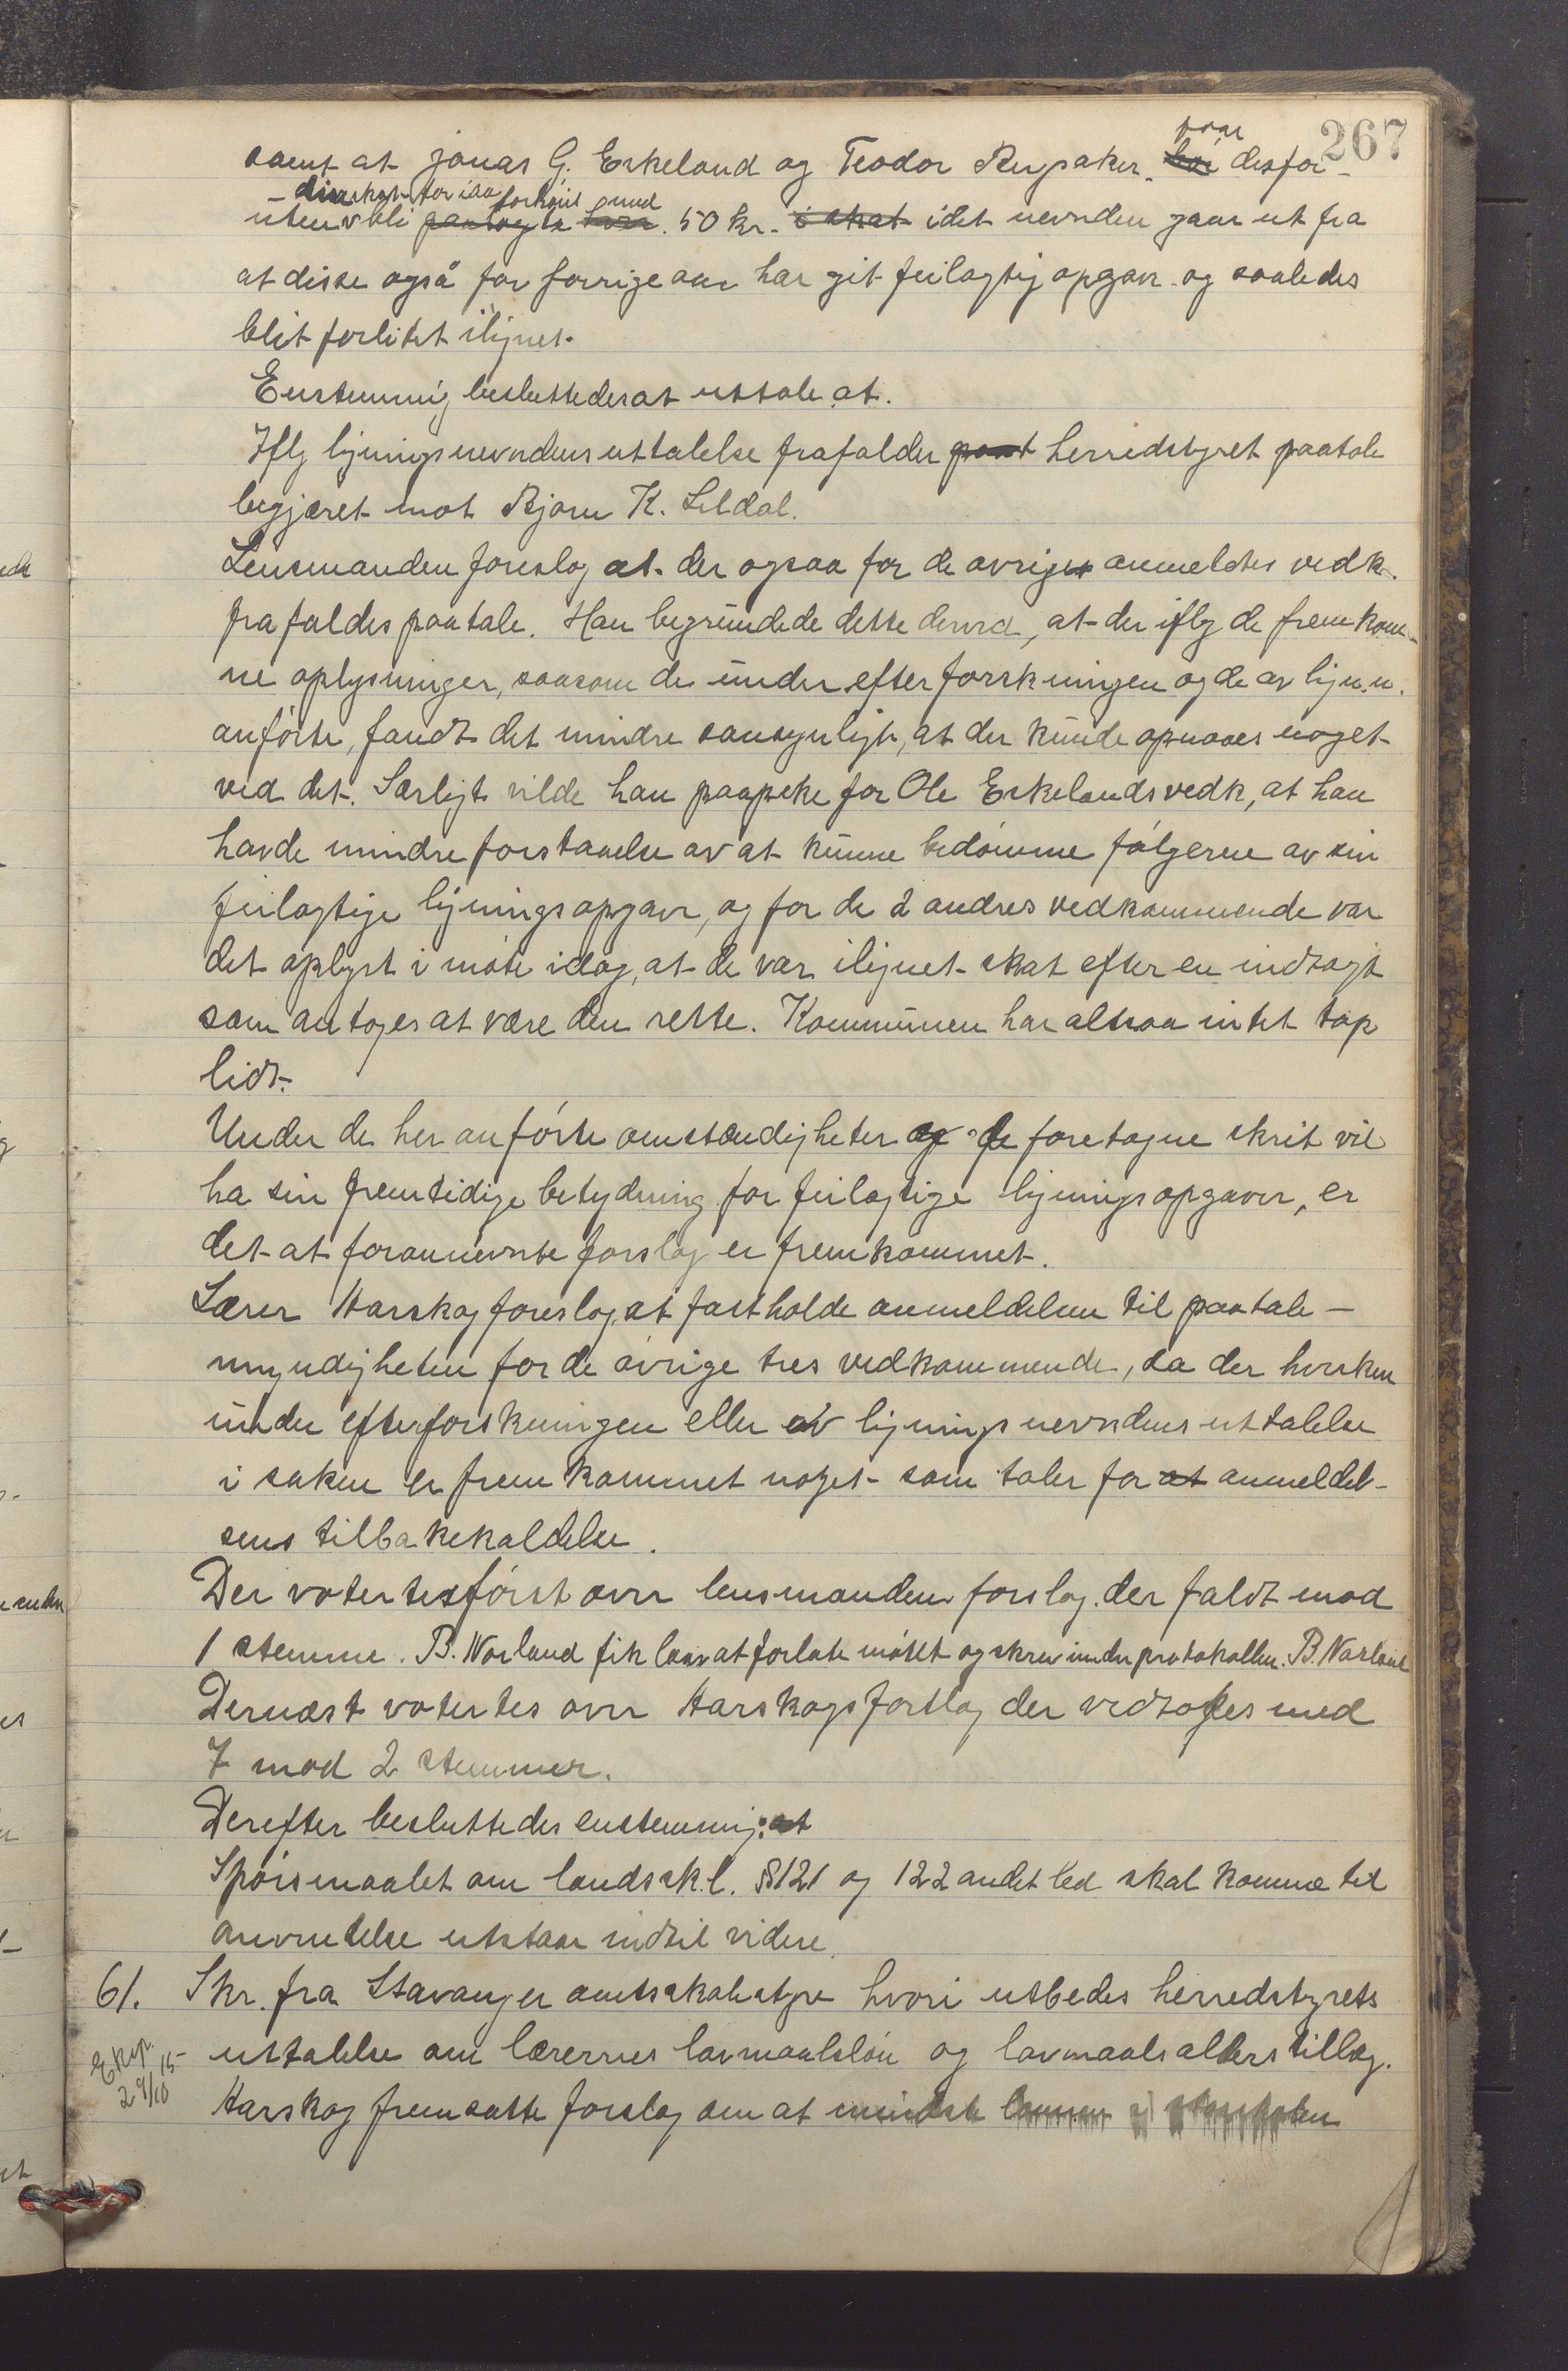 267
samt at Jonas G. Eskeland og Teodor Rugsaker. bør desfor-
uten bli paalagt 50 kr. i skat idet nevnden gaar ut fra
at disse også for forrige aar har git feilagtig opgave og saaledes
blit forlitet ilignet.
Enstemmig besluttedes at uttale at.
Iflg ligningsnevndens uttalelse frafalder herredstyret paatale
begjæret mot Bjorn K. Lildal.
Lensmanden foreslog at der ogsaa for de øvrige anmeldtes vedk.
frafaldes paatale. Han begrundede dette derved, at der iflg de fremkom-
ne oplysninger, saasom de under efterforskningen og de av lign.n.
anførte, fandt det mindre sansynligt, at der kunde opnaaes noget
ved det. Særligt vilde han paapeke for Ole Eskelands vedk, at han
havde mindre forstaaelse av at kunne bedømme følgerne av sin
feilagtige ligningsopgave, og for de 2 andres vedkommende var
det oplyst i møte idag, at de var ilignet skat efter en indtægt
som antoges at være den rette. Kommunen har altsaa intet tap
lidt.
Under de her anførte omstændigheter og de foretagne skrit vil
ha sin fremtidige betydning for feilagtige ligningsopgaver, er
det at forannevnte forslag er fremkommet.
Lærer Harskog foreslog, at fastholde anmeldelsen til paatale-
myndigheten for de øvrige tres vedkommende, da der hverken
under efterforskningen eller av ligningsnevndens uttalelse
i saken er fremkommet noget som taler for at anmeldel-
sens tilbakekaldelse.
Der votertes først over lensmandens forslag der faldt mod
1 stemme. B. Norland fik lov at forlate møtet og skrev under protokollen. B. Norland
Dernæst votertes over Harskogs forslag der vedtoges med
7 mod 2 stemmer.
Derefter besluttedes enstemmig: at
Spørsmaalet om landssk.l. §121 og 122 andet led skal komme til
anvendelse utstaar indtil videre.
61. Skr. fra Stavanger amtsskolestyre hvori utbedes herredstyrets
uttalelse om lærernes lavmaalsløn og lavmaals alderstillæg.
Eksp. 29/10 15
Harskog fremsatte forslag om at mindste lønnen